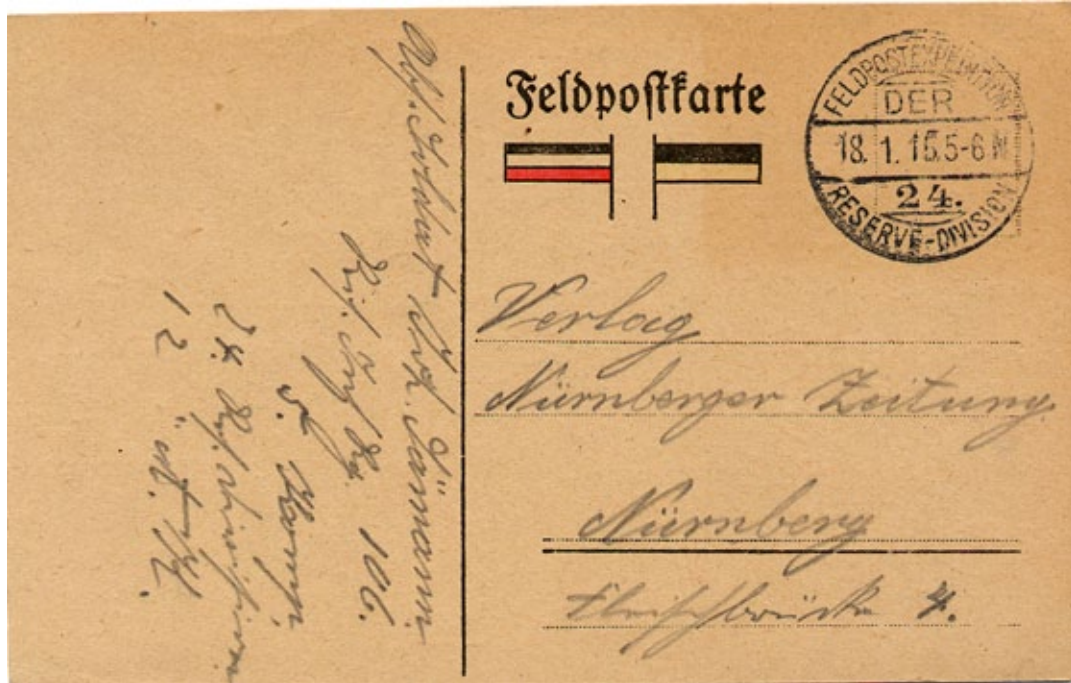 Feldpostkarte
FELDPOSTEXPEDITION
DER
18. 1. 15. 5-6 N
24.
RESERVE-DIVISION
Verlag
Nürnberger Zeitung
Nürnberg
Fleischbrücke 4.
Abs. Soldat
Res. Inf. Reg. 106.
Komp.
24. Res. Division
12